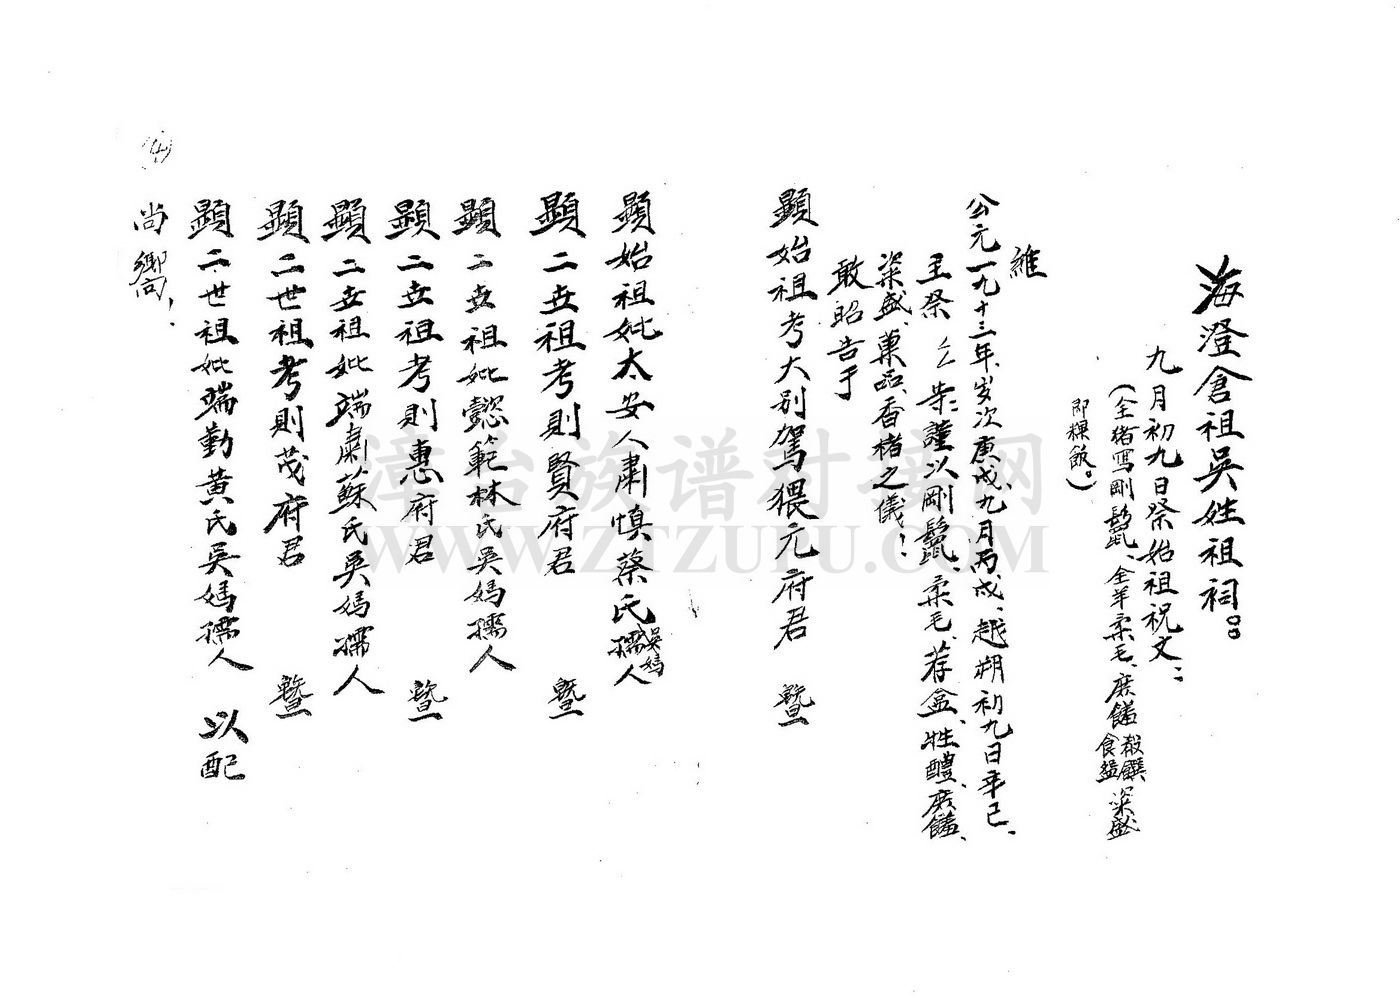 海澄倉祖吳姓祖祠。
九月初九日祭始祖祝文:
(全猪写剛鬣、全羊柔毛、庶饈 殽饌 食鎰 粢盛
即粿飯。)
維
公元一九十三年、岁次庚戌、九月丙戌、越朔初九日辛已、
主祭 等謹以剛鬣、柔毛、荐盒、牲醴、庶饈、
粢盛、菓品、香楮之儀!
敢昭告于
顯始祖考大別駕猥元府君 暨
顯始祖妣太安人肅慎蔡氏吳媽孺人
顯二世祖考則賢府君 暨
顯二世祖妣懿範林氏吳媽孺人
顯二世祖考則惠府君 暨
顯二世祖妣端肅蘇氏吳媽孺人
顯二世祖考則茂府君 暨
顯二世祖妣端勤黄氏吳媽孺人 以配
尚嚮,
(4)
漳台族谱对接网
WWW.ZTZUPU.COM